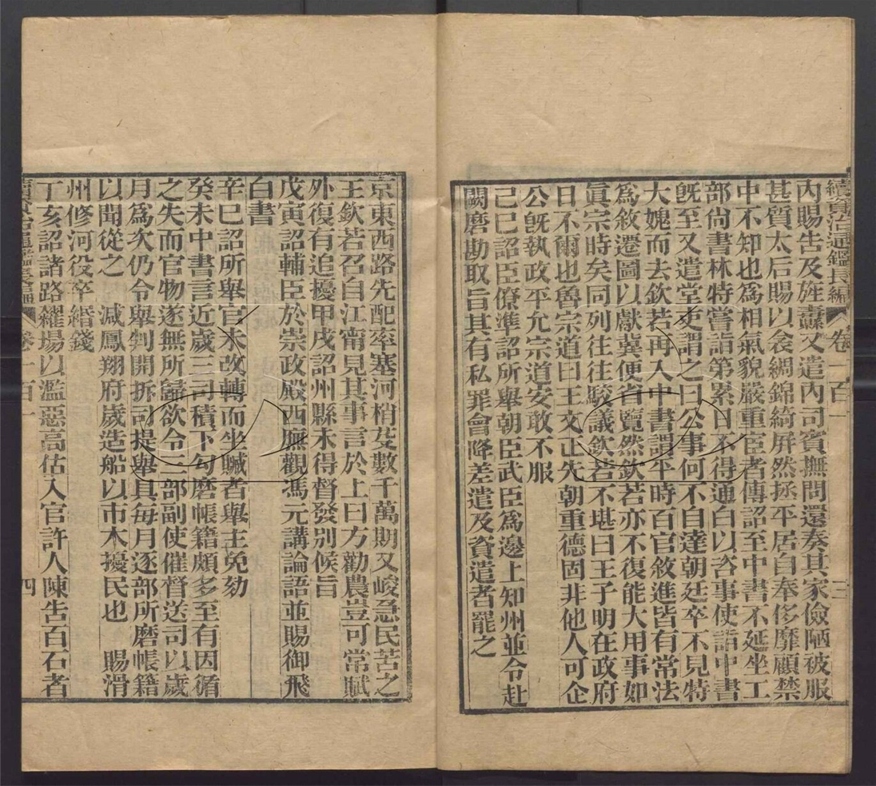 續資治通鑑長編 卷一百一 三
內賜告及旌纛又遣內司賓撫問還奏其家儉陋被服
甚質太后賜以衾綢錦綺屏然拯平居自奉侈靡顧禁
中不知也為相氣貌嚴重宦者傳詔至中書不延坐工
部尚書林特嘗詣第累日不得通白以咨事使詣中書
旣至又遣堂吏謂之曰公事何不自達朝廷卒不見特
大媿而去欽若再入中書謂平時百官敘進皆有常法
為敘遷圖以獻冀便省覽然欽若亦不復能大用事如
眞宗時矣同列往往駮議欽若不堪曰王子明在政府
日不爾也魯宗道曰王文正先朝重德固非他人可企
公旣執政平允宗道安敢不服
己巳詔臣僚準詔所舉朝臣武臣為邊上知州並令赴
闕磨勘取旨其有私罪會降差遣及資遣者罷之
京東西路先配率塞河梢芟數千萬期又峻急民苦之
王欽若召自江甯見其事言於上曰方勸農豈可常賦
外復有追擾甲戌詔州縣未得督發別候旨
戊寅詔輔臣於崇政殿西廡觀馮元講論語並賜御飛
白書
辛巳詔所舉官未改轉而坐贓者舉主免劾
癸未中書言近歲三司積下勾磨帳籍頗多至有因循
之失而官物遂無所歸欲令三部副使催督送司以歲
月為次仍令舉判開拆司提舉具每月逐部所磨帳籍
以聞從之 減鳳翔府歲造船以市木擾民也 賜滑
州修河役卒緡錢
丁亥詔諸路糴場以濫惡高估入官許人陳告百石者
續資治通鑑長編 卷一百一 四